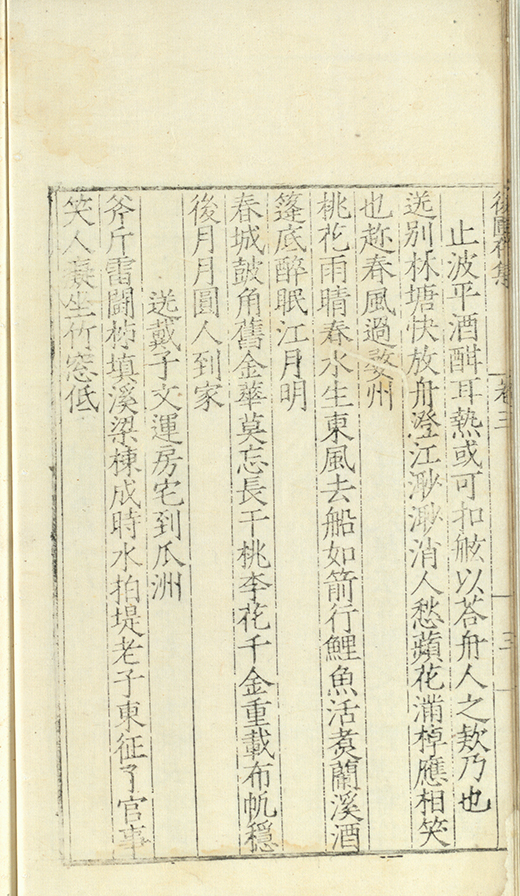 後圃存集 卷三 三
止波平酒酣耳熱或可扣舷以荅舟人之欸乃也
送别林塘快放舟澄江渺渺消人愁蘋花滿棹應相笑
也趂春風過婺州
桃花雨晴春水生東風去船如箭行鯉魚活煑蘭溪酒
篷底醉眠江月明
春城皷角舊金華莫忘長干桃李花千金重載布帆穏
後月月圓人到家
送戴子文運房宅到瓜洲
斧斤雷鬪栋填溪梁棟成時水拍堤老子東征了官事
笑人䘮坐竹窓低